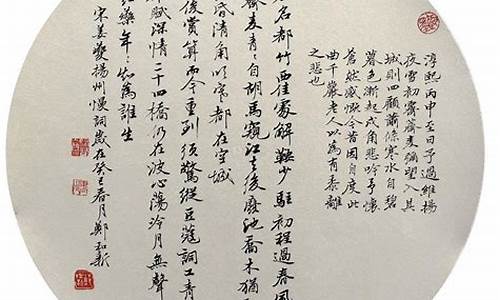 淳熙丙申至日予過維揚
夜雪初霽薺麥彌望入其
城則四顧蕭條寒水自碧
暮色漸起戍角悲吟予懷
愴然感慨今昔因自度此
曲千巖老人以為有黍離
之悲也
名都竹西佳處解鞍少駐初程過春風
薺麥青〻自胡馬窺江去後廢池喬木猶
昏清角吹寒都在空城
後賞算而今重到須驚縱豆蔻詞工青
賦深情二十四橋仍在波心蕩冷月無聲
紅藥年〻知為誰生
宋姜夔揚州慢詞歲在癸巳春月鄭和新